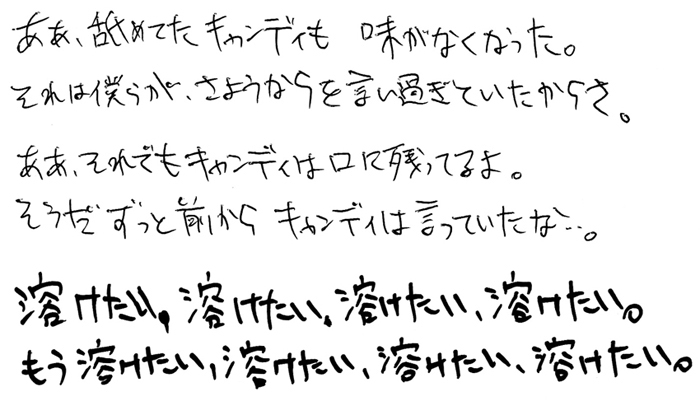 ああ、舐めてたキャンディも 味がなくなった。
それは僕らが、さようならを言い過ぎていたからさ。
ああ、それでもキャンディは口に残ってるよ。
そうだずっと前から キャンディは言っていたな…。
溶けたい、溶けたい、溶けたい、溶けたい。
もう溶けたい、溶けたい、溶けたい、溶けたい。